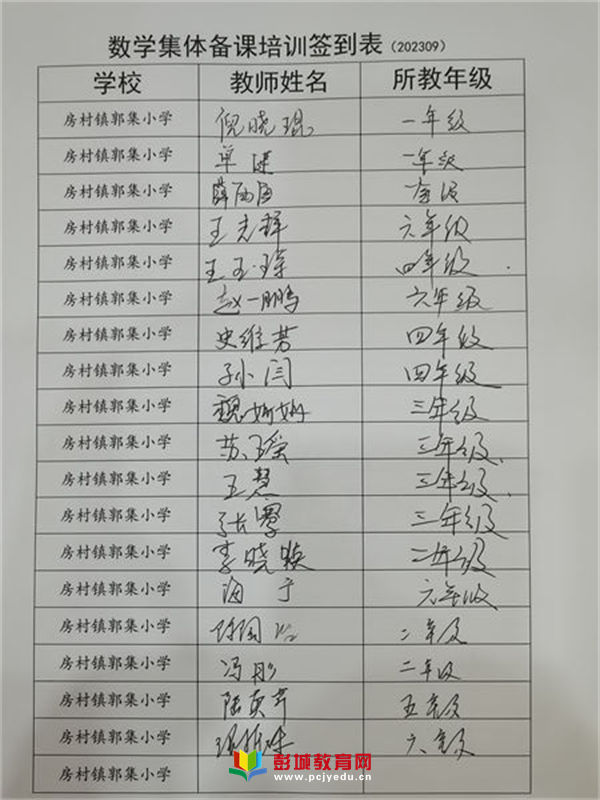 数学集体备课培训签到表（202309）
学校 教师姓名 所教年级
房村镇郭集小学 倪晓琨 一年级
房村镇郭集小学 单健 一年级
房村镇郭集小学 薛
房村镇郭集小学 王光辉 六年级
房村镇郭集小学 王玉琼 四年级
房村镇郭集小学 赵一鹏 六年级
房村镇郭集小学 史维芳 四年级
房村镇郭集小学 孙闫 四年级
房村镇郭集小学 魏姗姗 三年级
房村镇郭集小学 苏瑶 三年级
房村镇郭集小学 王慧 三年级
房村镇郭集小学 张 三年级
房村镇郭集小学 李晓 二年级
房村镇郭集小学 海宁 六年级
房村镇郭集小学 二年级
房村镇郭集小学 冯彤 二年级
房村镇郭集小学 陆 五年级
房村镇郭集小学 六年级
房村镇郭集小学
彭城教育网
www.pcjyedu.cn